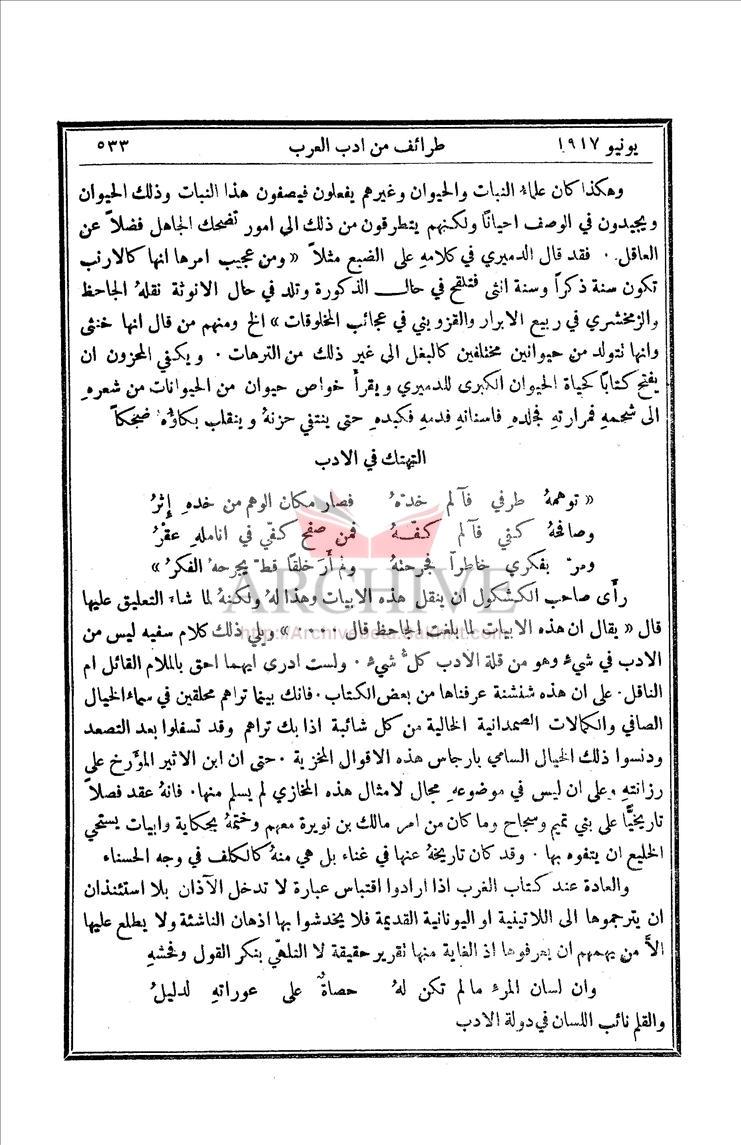 يونيو ١٩١٧ طرائف من ادب العرب ٥٣٣
وهكذا كان علماء النبات والحيوان وغيرهم يفعلون فيصفون هذا النبات وذلك الحيوان
ويجيدون في الوصف احيانًا ولكنهم يتطرقون من ذلك الى امور تضحك الجاهل فضلاً عن
العاقل . فقد قال الدميري في كلامهِ على الضبع مثلاً « ومن عجيب امرها انها كالارنب
تكون سنة ذكرًا وسنة انثى فتلقح في حال الذكورة وتلد في حال الانوثة نقلهُ الجاحظ
والزمخشري في ربيع الابرار والقزويني في عجائب المخلوقات » الخ ومنهم من قال انها خنثى
وانها تتولد من حيوانين مختلفين كالبغل الى غير ذلك من الترهات . ويكفي المحزون ان
يفتح كتابًا كحياة الحيوان الكبرى للدميري ويقرأ خواص حيوان من الحيوانات من شعرهِ
الى شحمهِ فمرارتهِ فجلدهِ فاسنانهِ فدمهِ فكبدهِ حتى ينتفي حزنهُ وينقلب بكاؤهُ ضحكًا
التهتك في الادب
« توهمهُ طرفي فآلم خدّهُ فصار مكان الوهم من خدهِ إثرُ
وصافحهُ كفي فآلم كفَّهُ فمن صفح كفّي في اناملهِ عقرُ
ومرّ بفكري خاطرًا فجرحتهُ ولم أرَ خلقًا قطّ يجرحهُ الفكرُ »
ARCHIVE
رأى صاحب الكشكول ان ينقل هذه الابيات وهذا لهُ ولكنهُ لما شاء التعليق عليها
http://Archivebeta.Sakhrit.com
قال « يقال ان هذه الابيات لما بلغت الجاحظ قال ..... » ويلي ذلك كلام سفيه ليس من
الادب في شيءٍ وهو من قلة الادب كلُّ شيءٍ . ولست ادرى ايهما احق بالملام القائل ام
الناقل . على ان هذه شنشنة عرفناها من بعض الكتاب . فانك بينما تراهم محلقين في سماء الخيال
الصافي والكمالات الصمدانية الخالية من كل شائبة اذا بك تراهم وقد تسفلوا بعد التصعد
ودنسوا ذلك الخيال السامي بارجاس هذه الاقوال المخزية . حتى ان ابن الاثير المؤرخ على
رزانتهِ وعلى ان ليس في موضوعهِ مجال لامثال هذه المخازي لم يسلم منها . فانهُ عقد فصلاً
تاريخيًّا على بني تميم وسجاح وما كان من امر مالك بن نويرة معهم وختمهُ بحكاية وابيات يستحي
الخليع ان يتفوه بها . وقد كان تاريخهُ عنها في غناء بل هي منهُ كالكلف في وجه الحسناء
والعادة عند كتاب الغرب اذا ارادوا اقتباس عبارة لا تدخل الآذان بلا استئذان
ان يترجموها الى اللاتينية او اليونانية القديمة فلا يخدشوا بها اذهان الناشئة ولا يطلع عليها
الاَّ من يهمهم ان يعرفوها اذ الغاية منها تقرير حقيقة لا التلهّي بنكر القول وفحشهِ
وان لسان المرءِ ما لم تكن لهُ حصاةٌ على عوراتهِ لدليلُ
والقلم نائب اللسان في دولة الادب